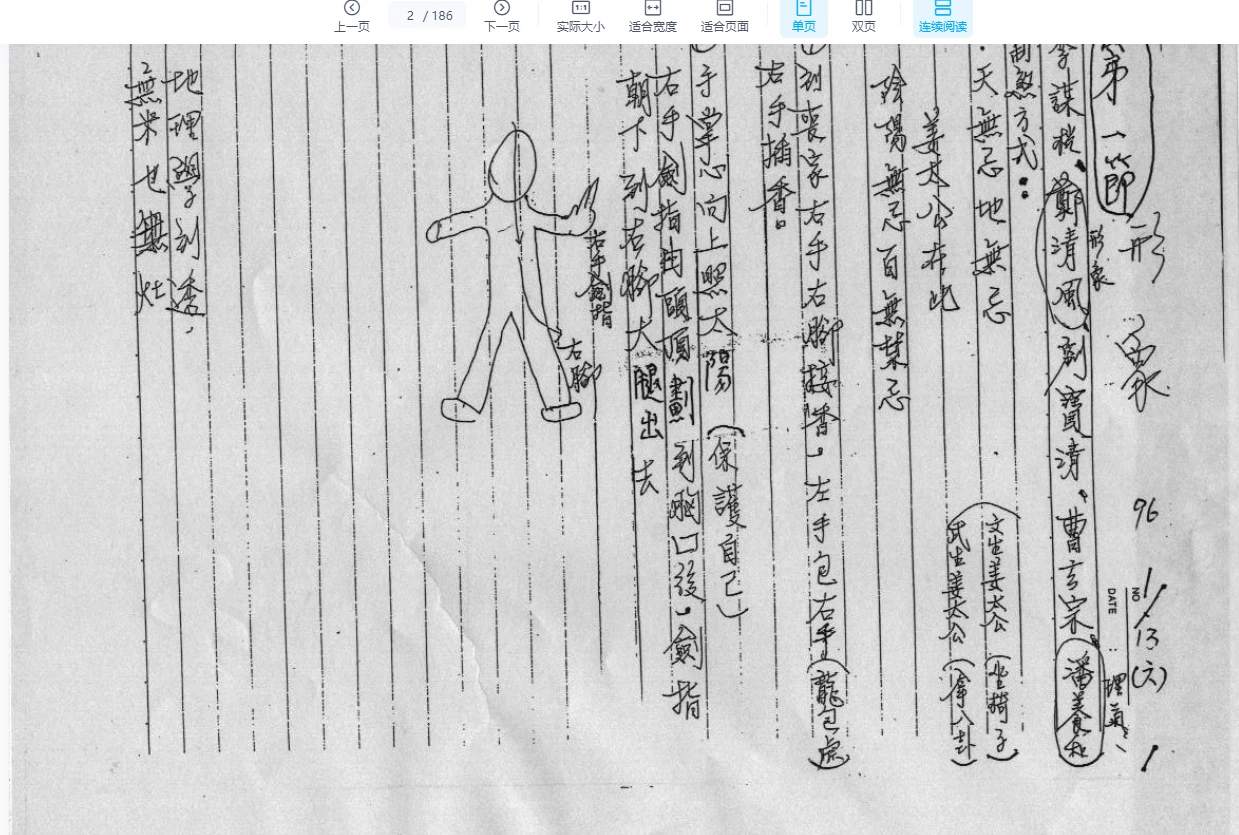 上一页
2 / 186
下一页
实际大小
适合宽度
适合页面
单页
双页
连续阅读
形象
96 1/13 (六)
NO
DATE
1
第一節
理氣
形象
李謀秋、鄭清風、劉寶清、曹玄宗、潘養
制煞方式：
・天無忌地無忌
文生姜太公（坐椅子）
姜太公在此
武生姜太公（拿八卦）
陰陽無忌百無禁忌
到喪家右手右腳接香，左手包右手（龍包虎）
右手插香。
手掌心向上照太陽（保護自己）
右手劍指由頭頂劃到胸口後，劍指
朝下到右腳大腿出去
右手劍指
右腳
地理學到透，
無米也無灶